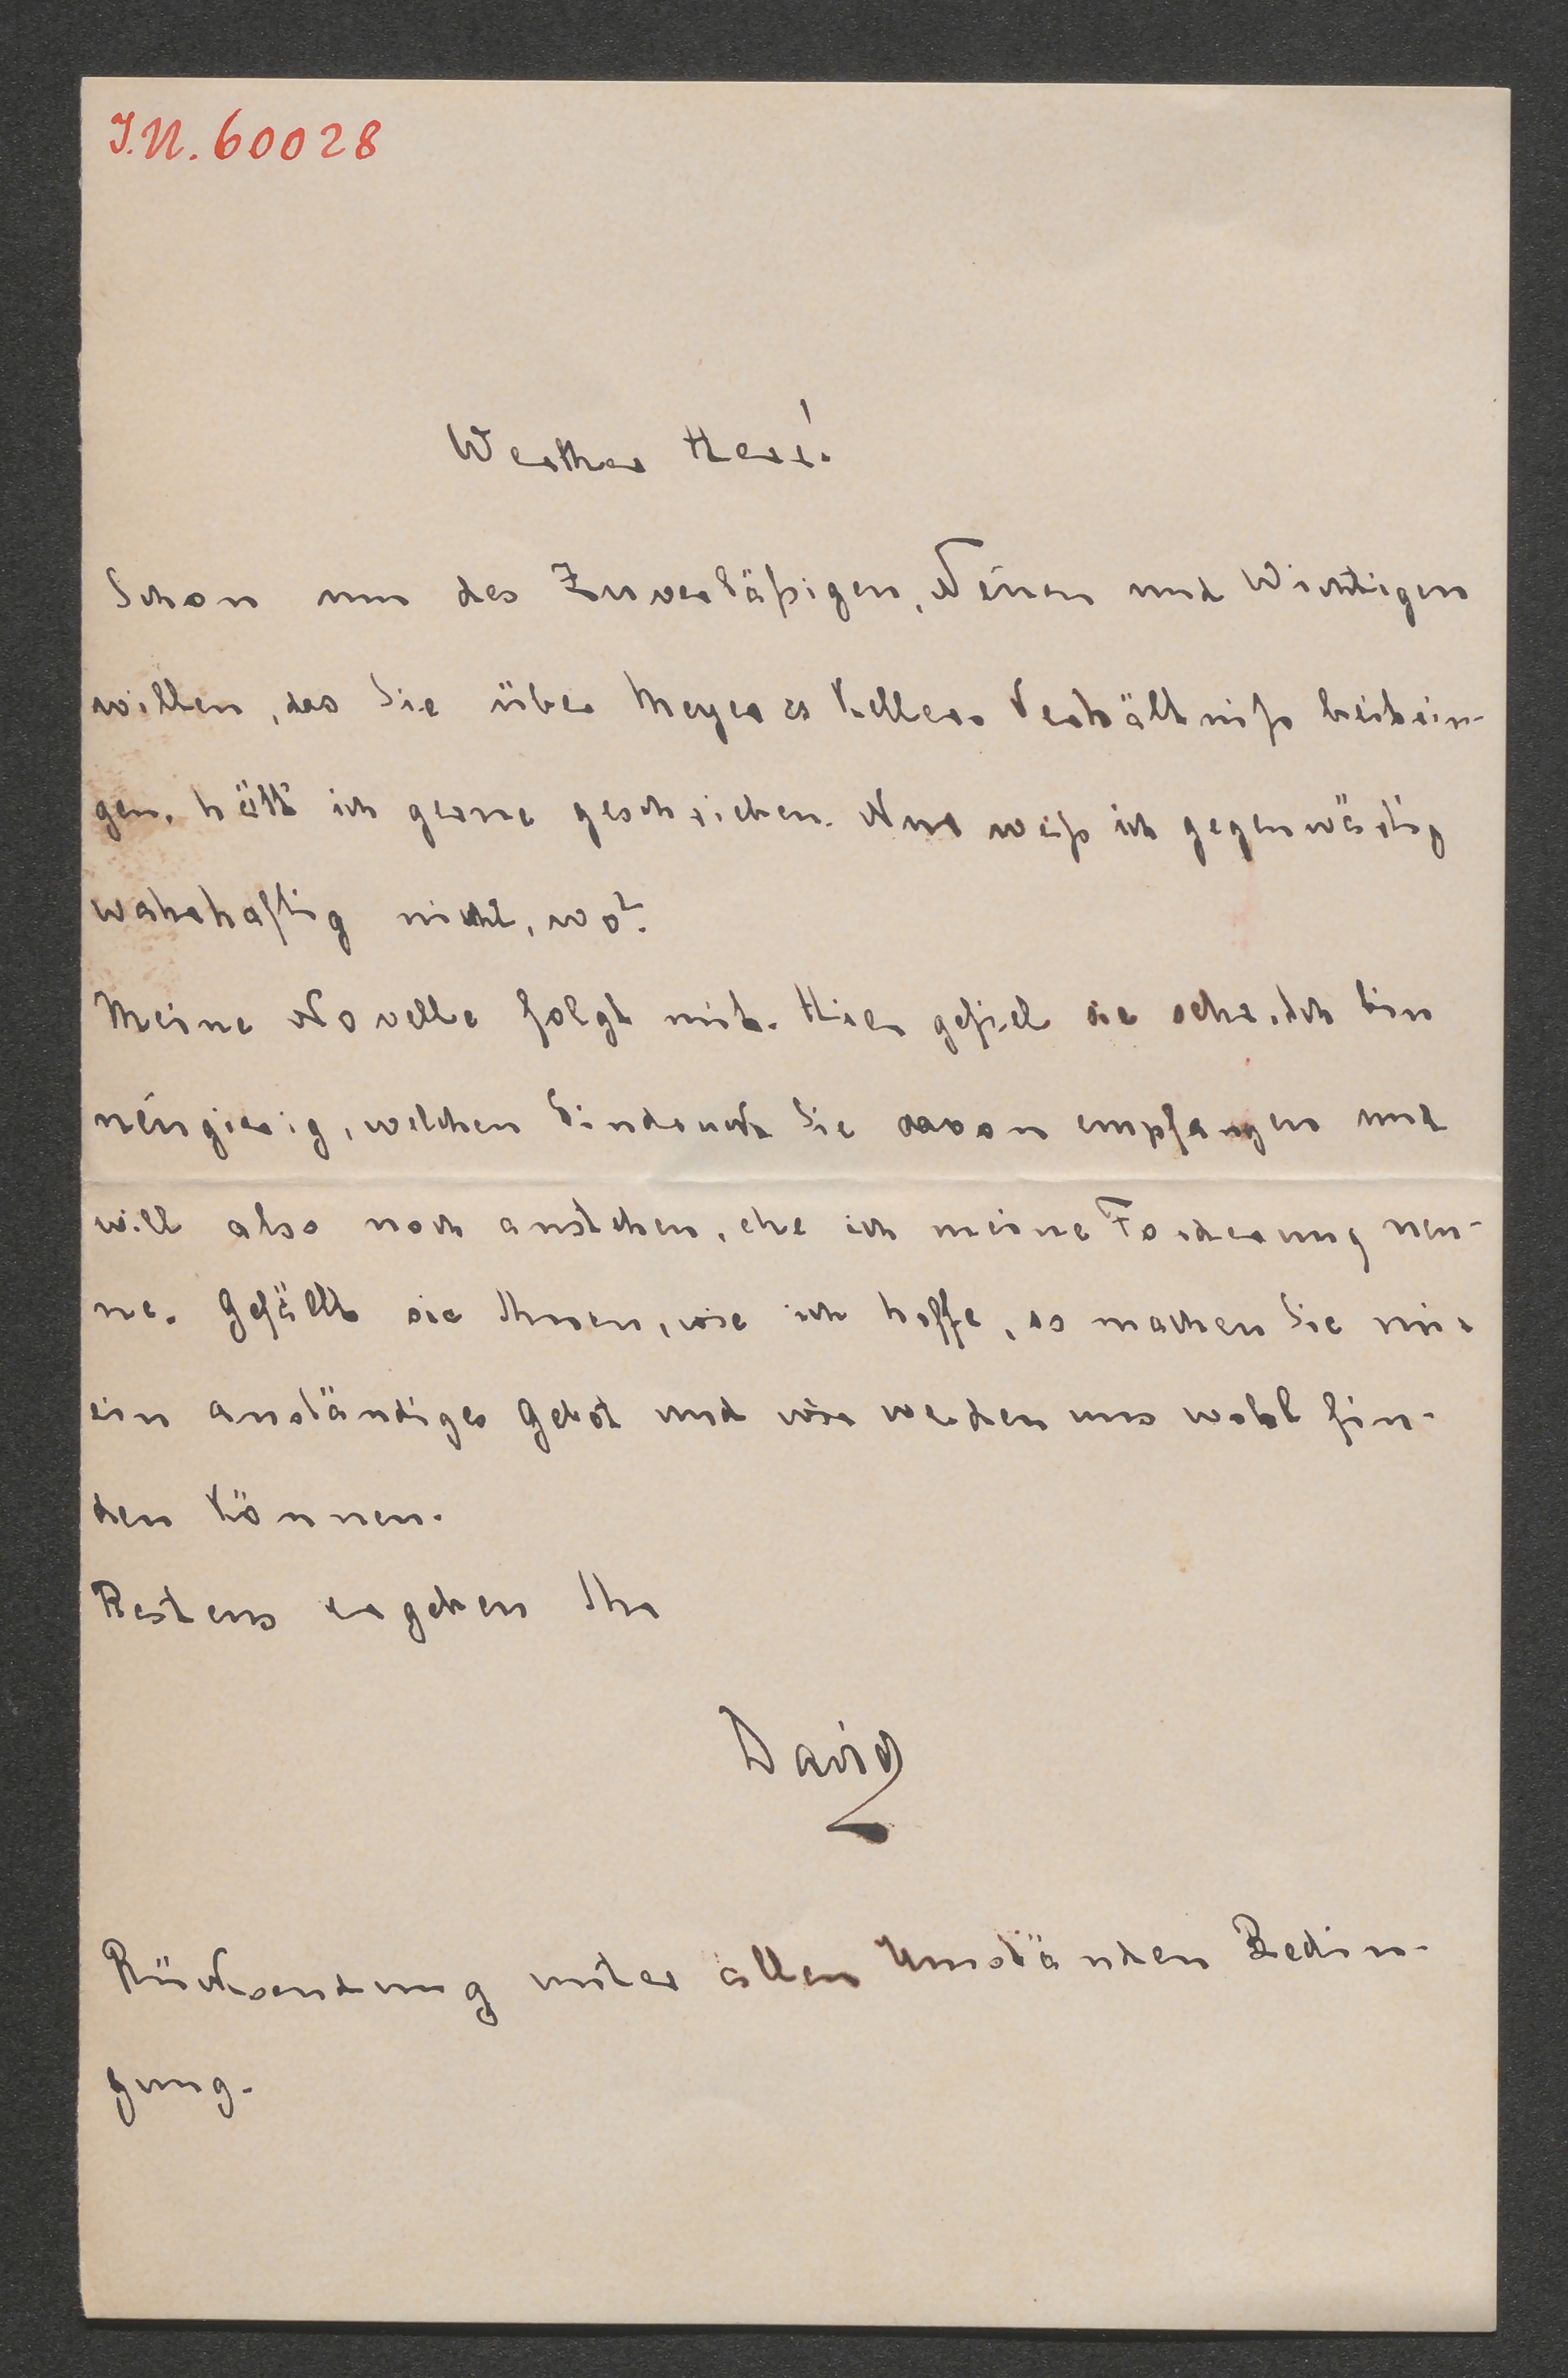 I.N. 60028
Werther Herr!
Schon um des Zuverläßigen, Neuen und Wichtigen
willen, das Sie über Meyer es Kellers Verhältniß beibrin-
gen, hätt' ich gerne geschrieben. Nur weiß ich gegenwärtig
wahrhaftig nicht, wo?
Meine Novelle folgt mit. Hier gefiel sie sehr. Ich bin
neugierig, welchen Eindruck Sie davon empfangen und
will also noch anstehen, ehe ich meine Forderung nen-
ne. Gefällt sie Ihnen, wie ich hoffe, so machen Sie mir
ein anständiges Gebot und wir werden uns wohl fin-
den können.
Bestens ergeben Ihr
David
Rücksendung unter allen Umständen Bedin-
gung.